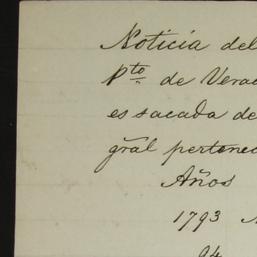 Noticia del
Pto de Vera
es sacada de
gral pertenec
Años
1793
94